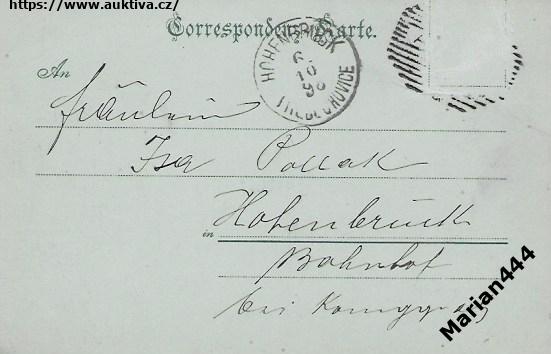 https://www.auktiva.cz/
Correspondenz-Karte.
HOHENBRUCK
6
10
98
TŘEBECHOVICE
An
Fräulein
Isa Pollak
in Hohenbruck
Bahnhof
bei
Marian444